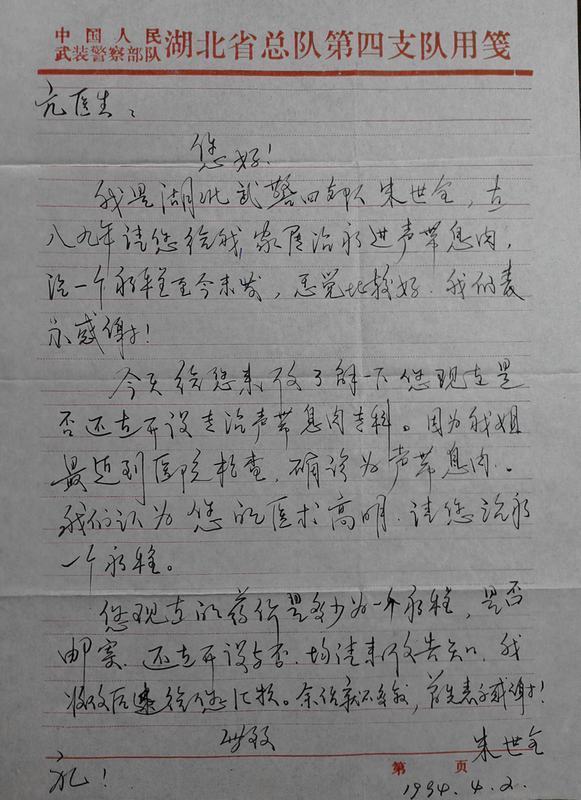 中国人民
武装警察部队 湖北省总队第四支队用笺
亢医生：
您好！
我是湖北武警四支队朱世全，在
八九年请您给我家属治疗过声带息肉，
治一个疗程至今未发，感觉比较好。我们表
示感谢！
今天给您来信了解一下您现在是
否还在开设专治声带息肉专科。因为我姐
最近到医院检查，确诊为声带息肉。
我们认为您的医术高明，请您治疗
一个疗程。
您现在的药价是多少为一个疗程，是否
邮寄，还在开设与否，均请来信告知，我
收信后速给您汇款。余言不多叙，首先表示感谢！
此致
礼！
朱世全
第 页
1994.4.2.